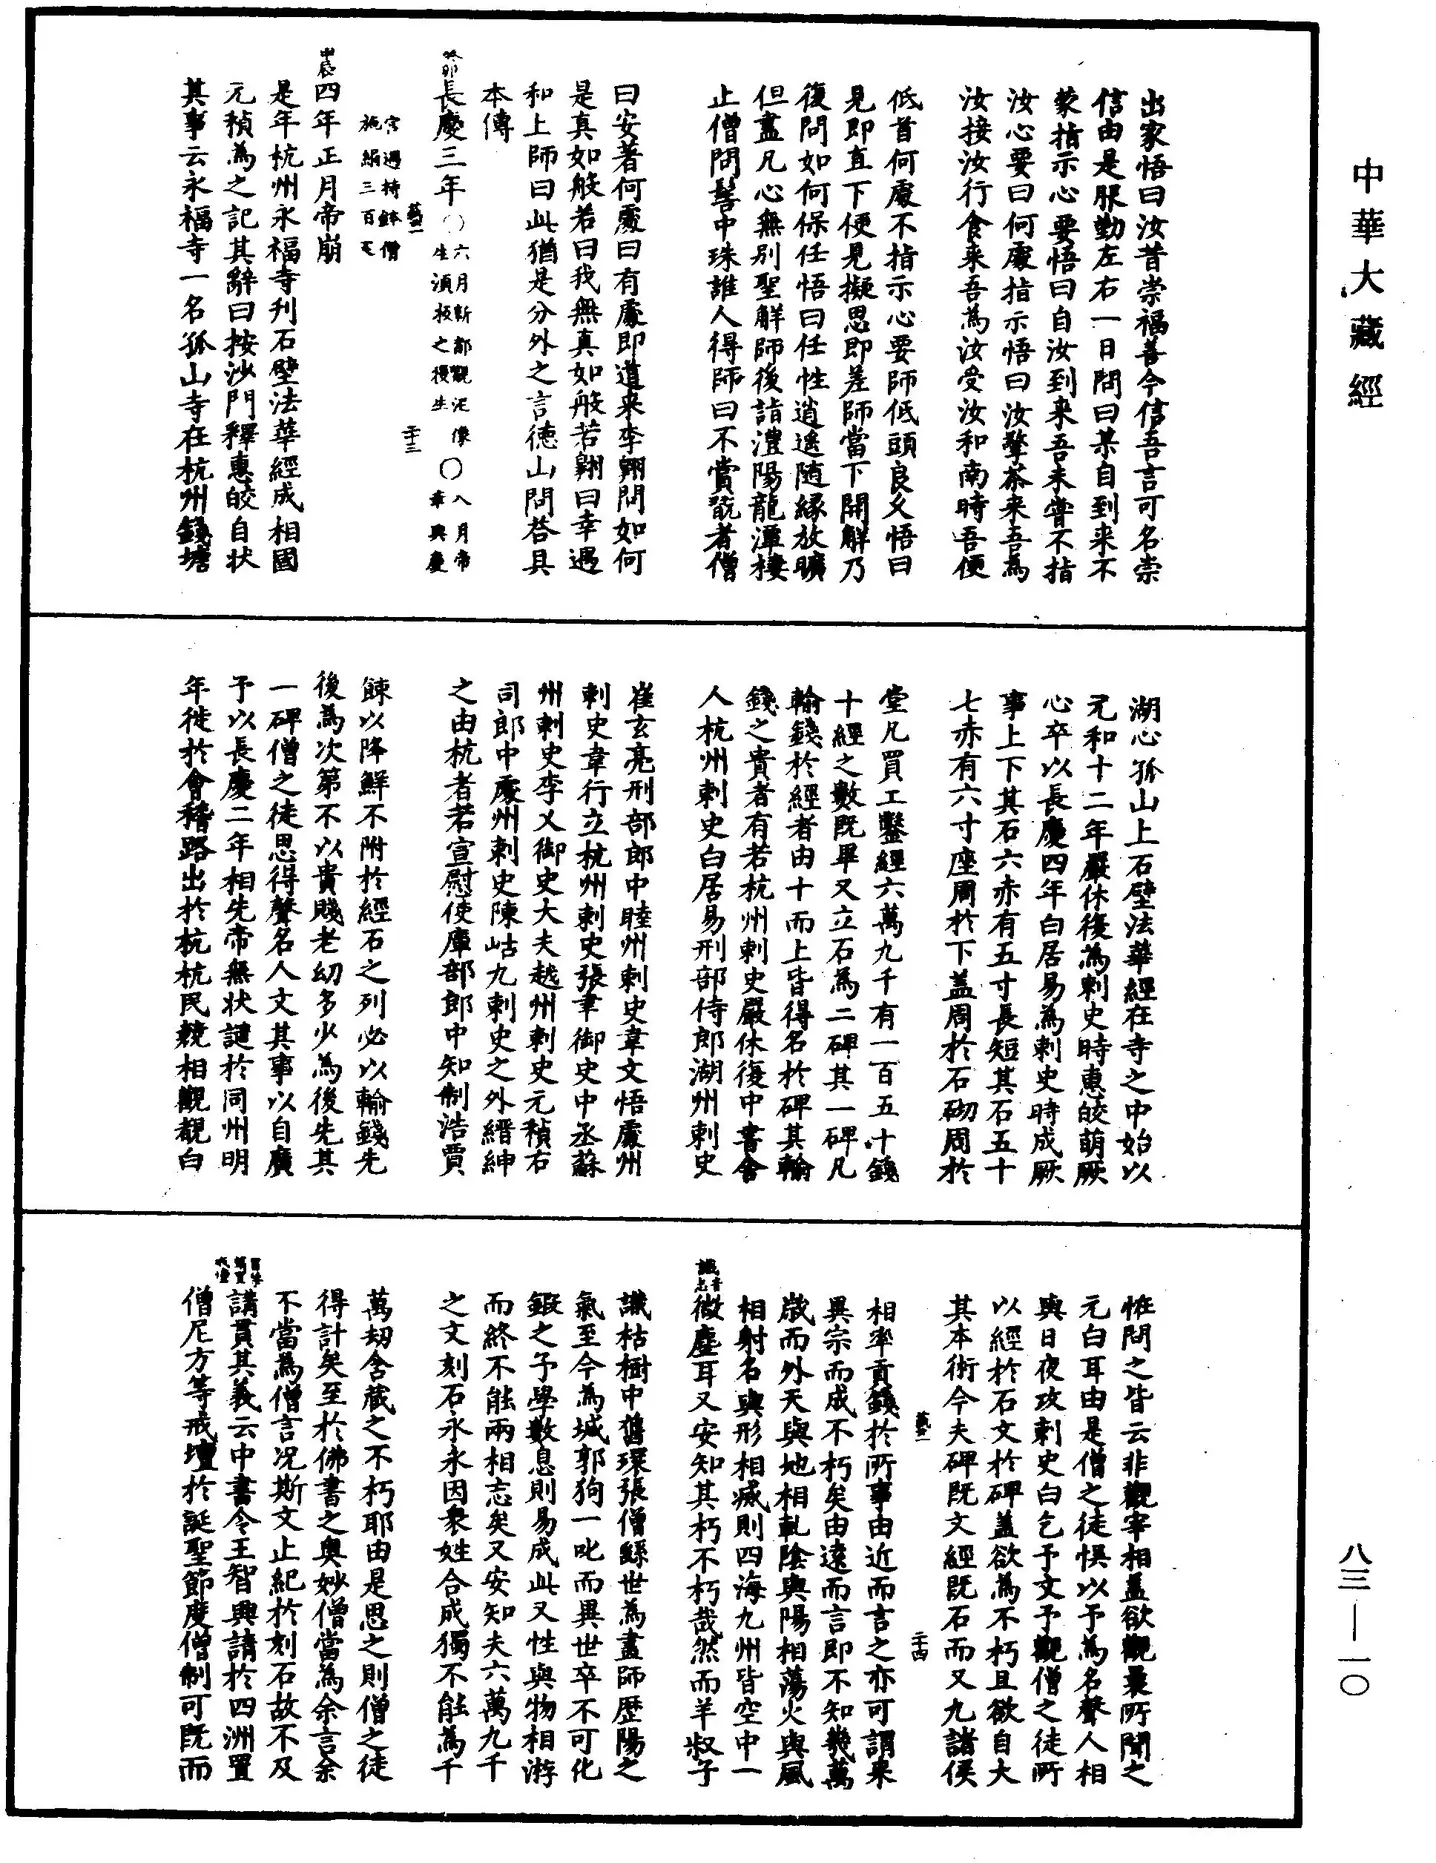 中華大藏經
出家悟曰汝昔崇福善今信吾言可名崇
信由是服勤左右一日問曰某自到來不
蒙指示心要悟曰自汝到來吾未嘗不指
汝心要曰何處指示悟曰汝擎茶來吾為
汝接汝行食來吾為汝受汝和南時吾便
低首何處不指示心要師低頭良久悟曰
見即直下便見擬思即差師當下開解乃
復問如何保任悟曰任性逍遙隨緣放曠
但盡凡心無別聖解師後詣澧陽龍潭棲
止僧問髻中珠誰人得師曰不賞翫者僧
曰安著何處曰有處即道來李翱問如何
是真如般若曰我無真如般若翱曰幸遇
和上師曰此猶是分外之言德山問答具
本傳
癸卯長慶三年〇六月新都觀泥像〇八月帝
生湏极之獶生幸興慶
宮遇持鉢僧
施絹三百疋
二十三
甲辰四年正月帝崩
是年杭州永福寺刋石壁法華經成相國
元稹為之記其辭曰按沙門釋惠皎自狀
其事云永福寺一名孤山寺在杭州錢塘
湖心孤山上石壁法華經在寺之中始以
元和十二年嚴休復為剌史時惠皎萌厥
心卒以長慶四年白居易為剌史時成厥
事上下其石六赤有五寸長短其石五十
七赤有六寸座周於下盖周於石砌周於
堂凡買工鑿經六萬九千有一百五十錢
十經之數既畢又立石為二碑其一碑凡
輸錢於經者由十而上皆得名於碑其輸
錢之貴者有若杭州剌史嚴休復中書舍
人杭州剌史白居易刑部侍郎湖州剌史
崔玄亮刑部郎中睦州剌史韋文悟處州
剌史韋行立杭州剌史張聿御史中丞蘇
州剌史李乂御史大夫越州剌史元稹右
司郎中處州剌史陳岵九剌史之外縉紳
之由杭者若宣慰使庫部郎中知制浩賈
餗以降鮮不附於經石之列必以輸錢先
後為次第不以貴賤老幼多少為後先其
一碑僧之徒思得聲名人文其事以自廣
予以長慶二年相先帝無狀譴於同州明
年徙於會稽路出於杭杭民競相觀覩白
恠問之皆云非觀宰相盖欲觀曩所聞之
元白耳由是僧之徒悞以予為名聲人相
與日夜攻剌史白乞予文予觀僧之徒所
以經於石文於碑盖欲為不朽且欲自大
其本術今夫碑既文經既石而又九諸侯
相率貢錢於所事由近而言之亦可謂來
異宗而成不朽矣由遠而言即不知幾萬
歲而外天與地相軋陰與陽相蕩火與風
相射名與形相滅則四海九州皆空中一
微塵耳又安知其朽不朽哉然而羊叔子
二十四
識枯樹中舊環張僧繇世為畫師歷陽之
氣至今為城郭狗一叱而異世卒不可化
鍛之予學數息則易成此又性與物相游
而終不能兩相志矣又安知夫六萬九千
之文刻石永永因衆姓合成獨不能為千
萬刧含藏之不朽耶由是思之則僧之徒
得計矣至於佛書之奧妙僧當為余言余
不當為僧言况斯文止紀於刻石故不及
講貫其義云中書令王智興請於四洲置
僧尼方等戒壇於誕聖節度僧制可既而
八三—一〇